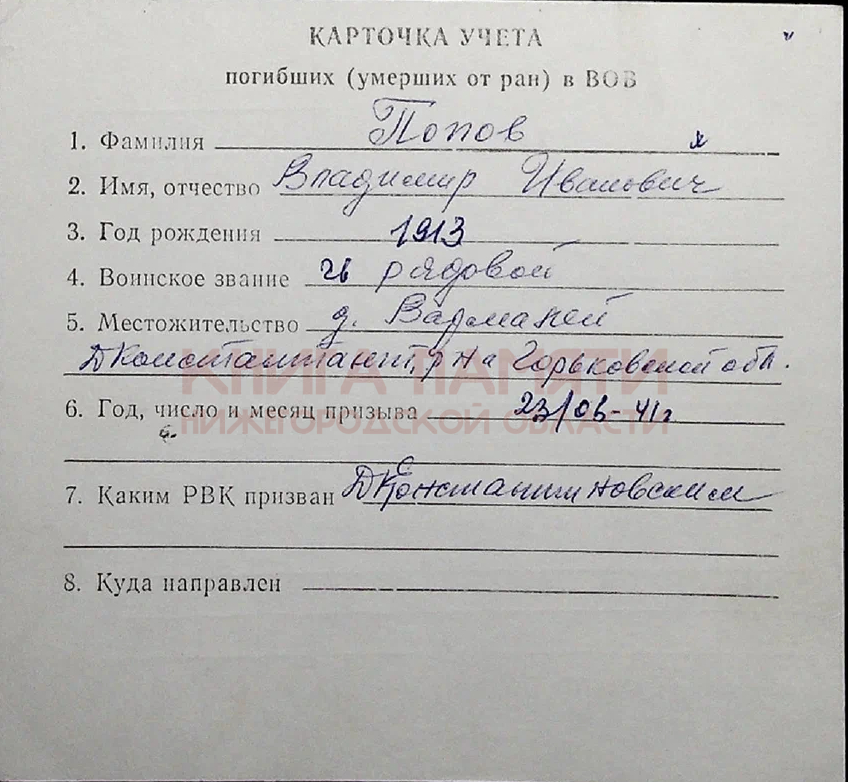 КАРТОЧКА УЧЕТА
погибших (умерших от ран) в ВОВ
1. Фамилия Попов
2. Имя, отчество Владимир Иванович
3. Год рождения 1913
4. Воинское звание гв рядовой
5. Местожительство д. Вармалей
ДКонстантин, р на Горьковской обл.
КНИГА ПАМЯТИ
6. Год, число и месяц призыва 23/06-41г
НИЖЕГОРОДСКОЙ ОБЛАСТИ
7. Каким РВК призван ДКонстантиновским
8. Куда направлен